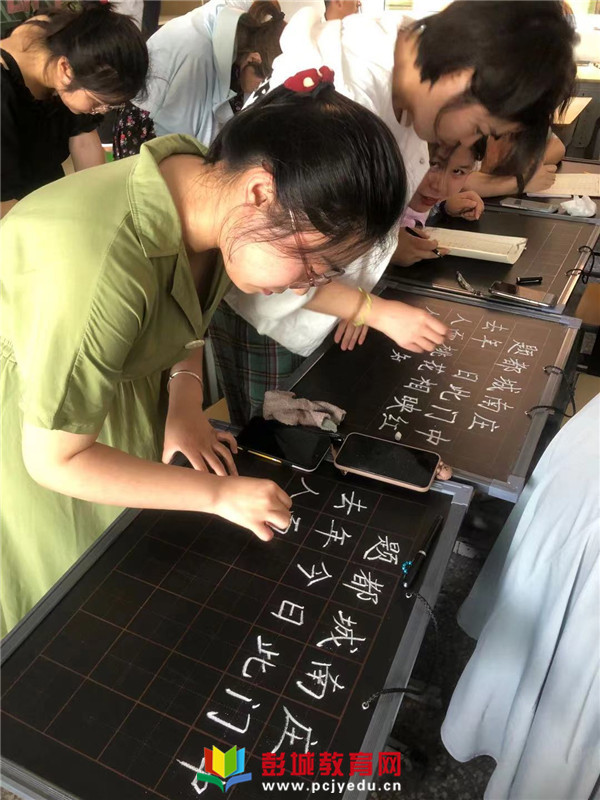 题都城南庄
去年今日此门中
人面
题都城南庄
去年今日此门中
人面桃花相映红
人
彭城教育网
www.pcjyedu.cn